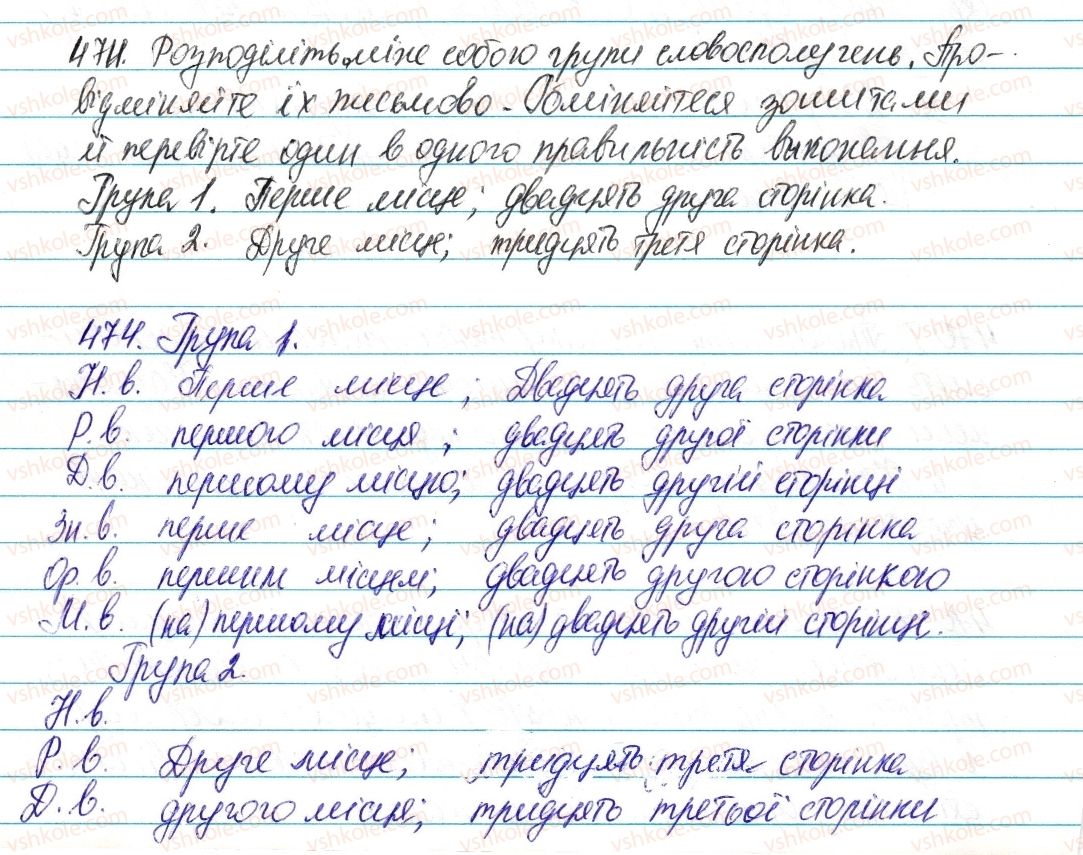 474. Розподіліть між собою групи словосполучень. Про-
відміняйте їх письмово. Обміняйтеся зошитами
й перевірте один в одного правильність виконання.
Група 1. Перше місце; двадцять друга сторінка.
Група 2. Друге місце; тридцять третя сторінка.
474. Група 1.
Н. в. Перше місце; Двадцять друга сторінка
Р. в. першого місця; двадцять другої сторінки
Д. в. першому місцю; двадцять другій сторінці
Зн. в. перше місце; двадцять друга сторінка
Ор. в. першим місцем; двадцять другою сторінкою
М. в. (на) першому місці; (на) двадцять другій сторінці.
Група 2.
Н. в.
Р. в. Друге місце; тридцять третя сторінка
Д. в. другого місця; тридцять третьої сторінки